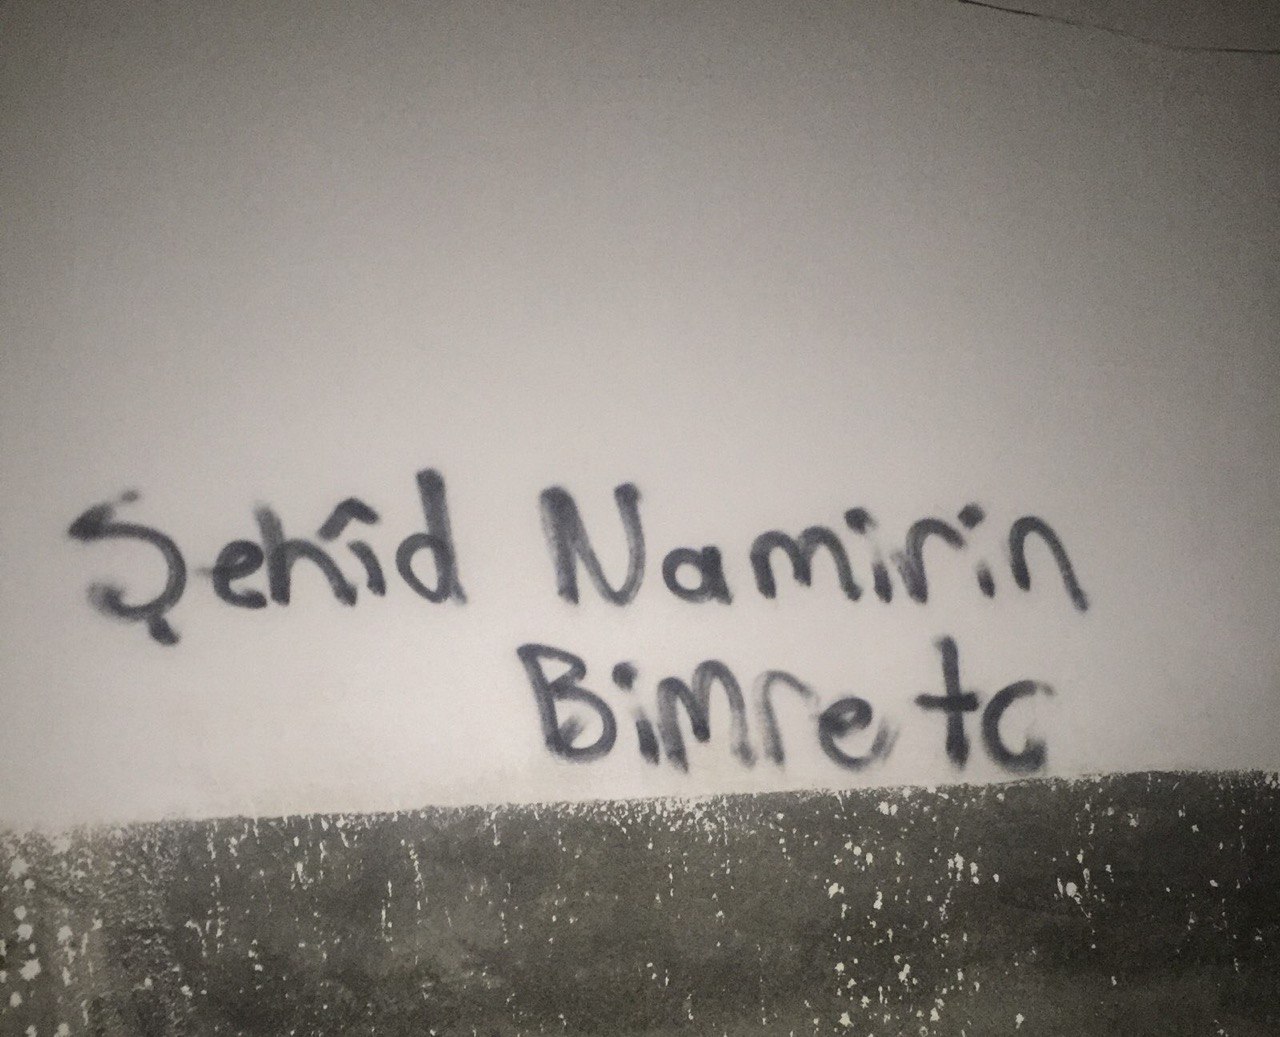 Şehîd Namirin
Bimre tc